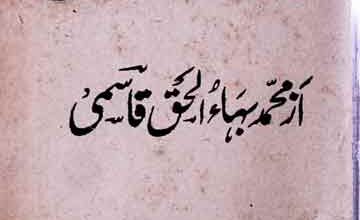 از محمد بہاءُ الحق قاسمی